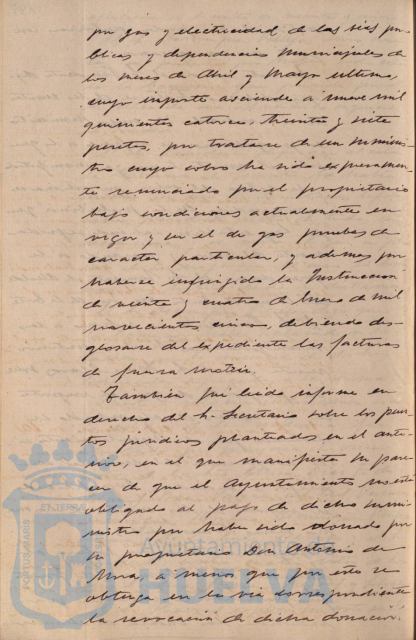 por gas y electricidad de las vias pu
blicas y dependencias municipales de
los meses de Abril y Mayo ultimo,
cuyo importe asciende á nueve mil
quinientas catorce, treinta y siete
pesetas, por tratarse de un suminis-
tro cuyo cobro ha sido expresamen-
te renunciado por el propietario
bajo condiciones actualmente en
vigor y en el de gas pruebas de
caracter particular, y ademas por
haberse infringido la Instruccion
de veinte y cuatro de Enero de mil
novecientos cinco, debiendo des-
glosarse del expediente las facturas
de fuerza motriz.
Tambien fué leido informe en
derecho del Sr. Secretario sobre los pun-
tos juridicos planteados en el ante-
rior, en el que manifiesta su pare-
cer de que el Ayuntamiento no está
obligado al pago de dicho sumi-
nistro por haber sido donado por
su propietario Don Antonio de
Mora, á menos que por este se
obtenga en la via correspondiente
la revocación de dicha donación.
PORTUS MARIS
ET TERRAE
Ayuntamiento de
HUELVA